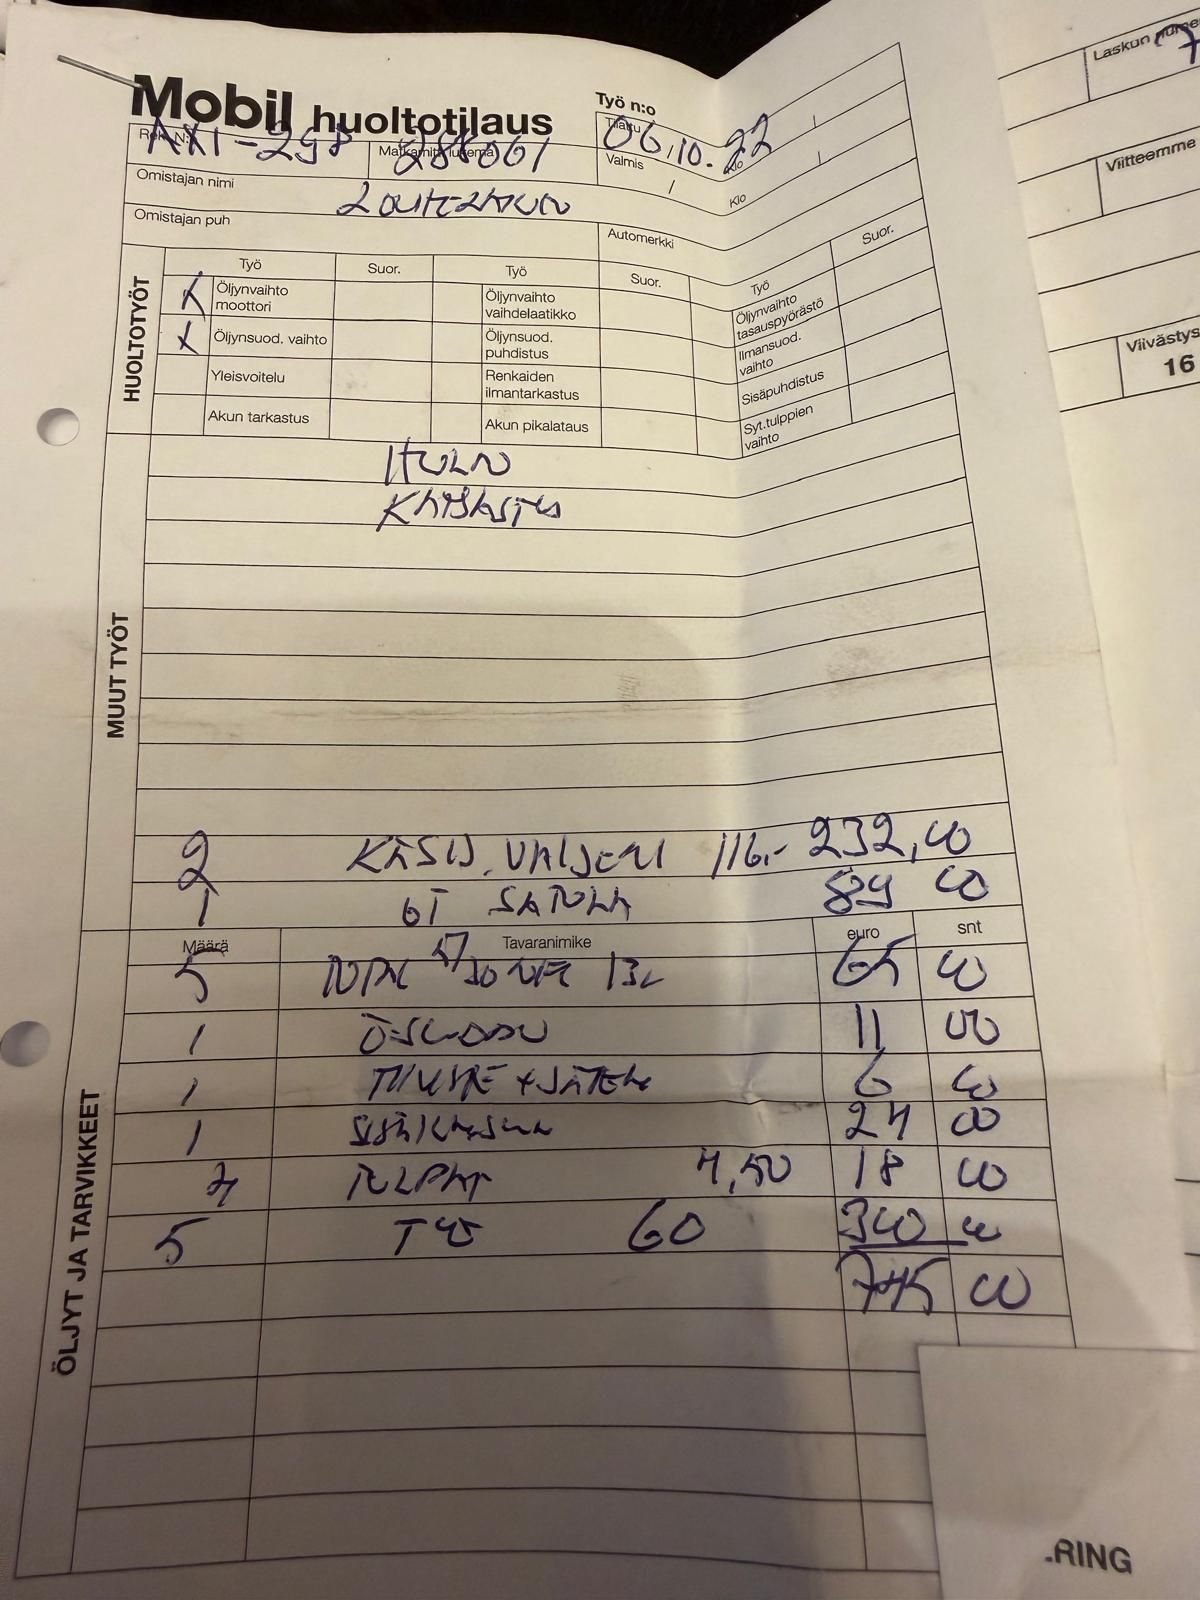 Mobil huoltotilaus
Työ n:o
Rek. N:o AXI-298
Matkamittarilukema 288061
Tilattu 06.10.22 Klo
Valmis / Klo
Omistajan nimi
Omistajan puh
Automerkki
HUOLTOTYÖT
Työ Suor. Työ Suor. Työ Suor.
X Öljynvaihto moottori
Öljynvaihto vaihdelaatikko
Öljynvaihto tasauspyörästö
X Öljynsuod. vaihto
Öljynsuod. puhdistus
Ilmansuod. vaihto
Yleisvoitelu
Renkaiden ilmantarkastus
Sisäpuhdistus
Akun tarkastus
Akun pikalataus
Syt.tulppien vaihto
MUUT TYÖT
2 KÄSIJ. VAIJERI 116.- 232,00
1 GT SATULA 89 00
Määrä Tavaranimike euro snt
ÖLJYT JA TARVIKKEET
5 65 00
1 11 00
1 TIIVISTE + 6 00
1 24 00
4 TULPAT 4,50 18 00
5 TYÖ 60 300 00
745 00
Laskun nume
7
Viitteemme
Viivästys
16
.RING